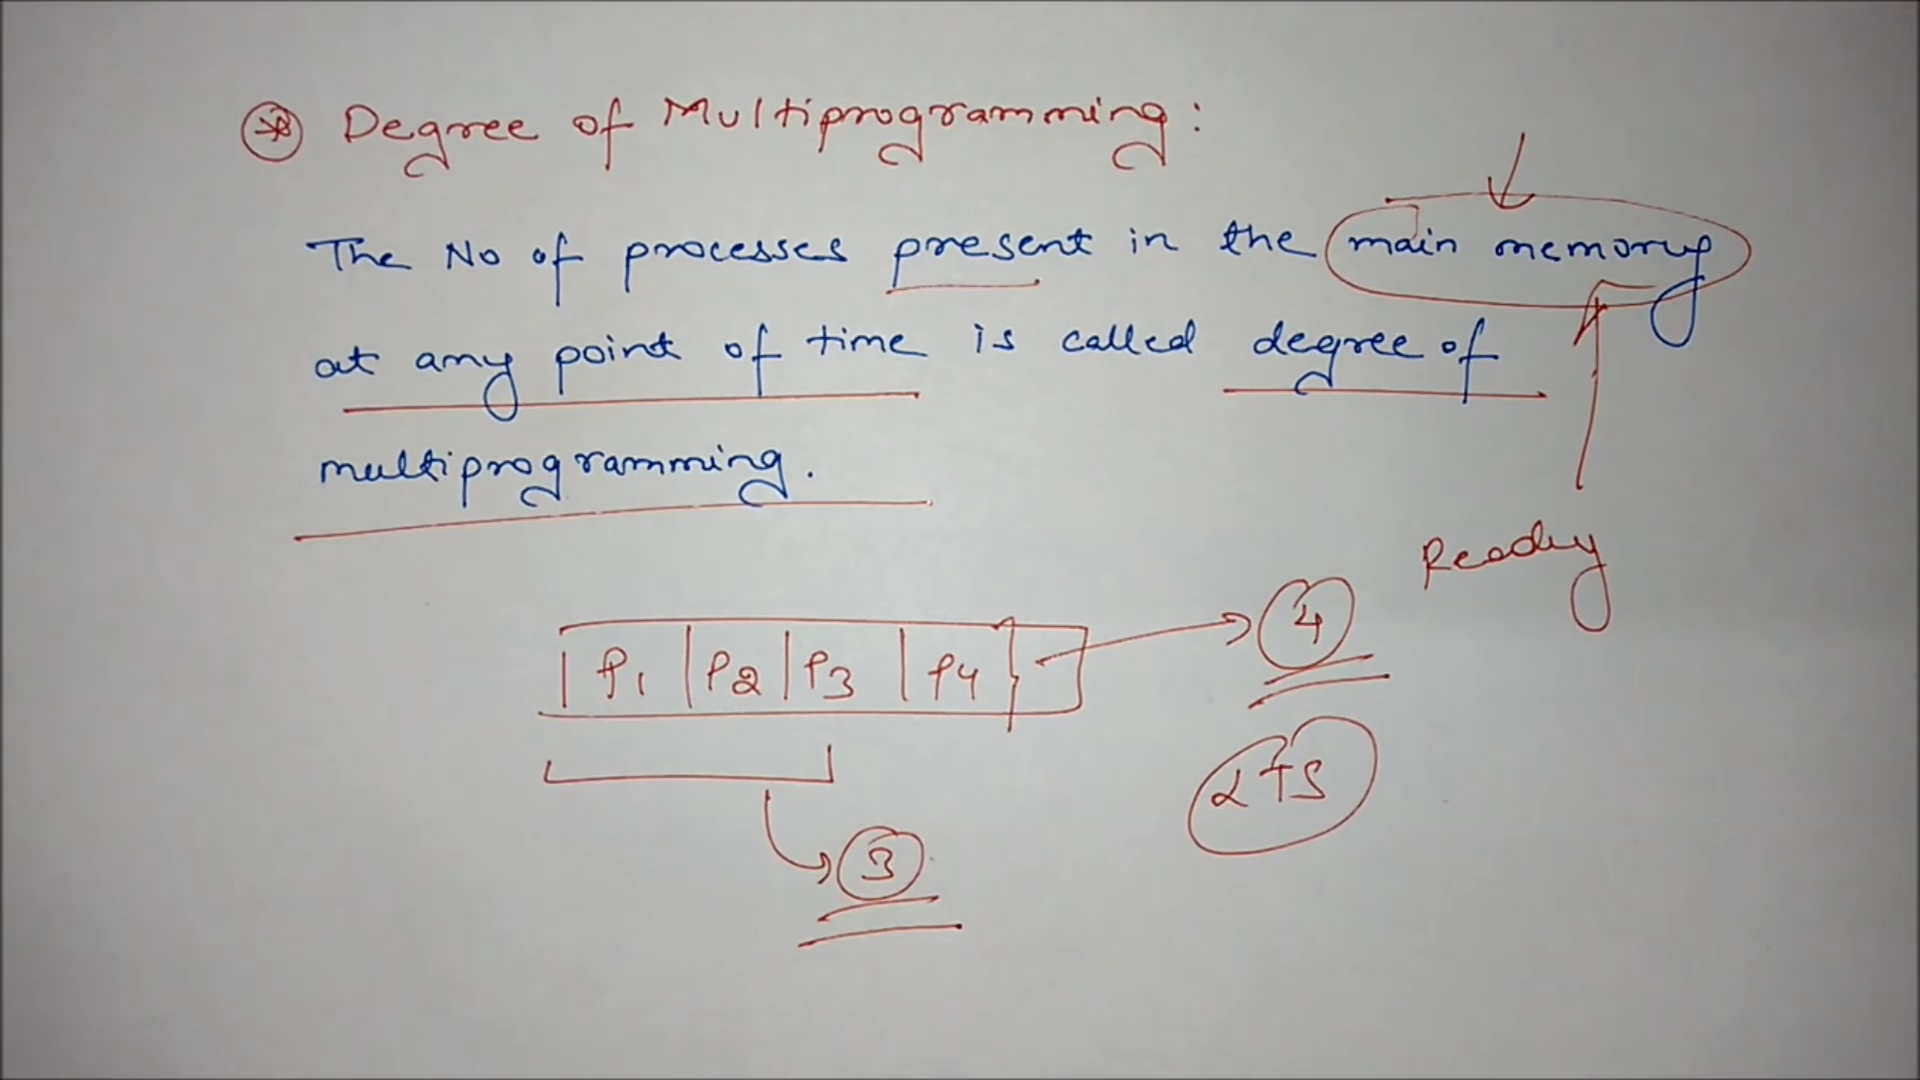 Degree of Multiprogramming:
The No of processes present in the main memory
at any point of time is called degree of
multiprogramming.
Ready
P1 P2 P3 P4
4
LTS
3